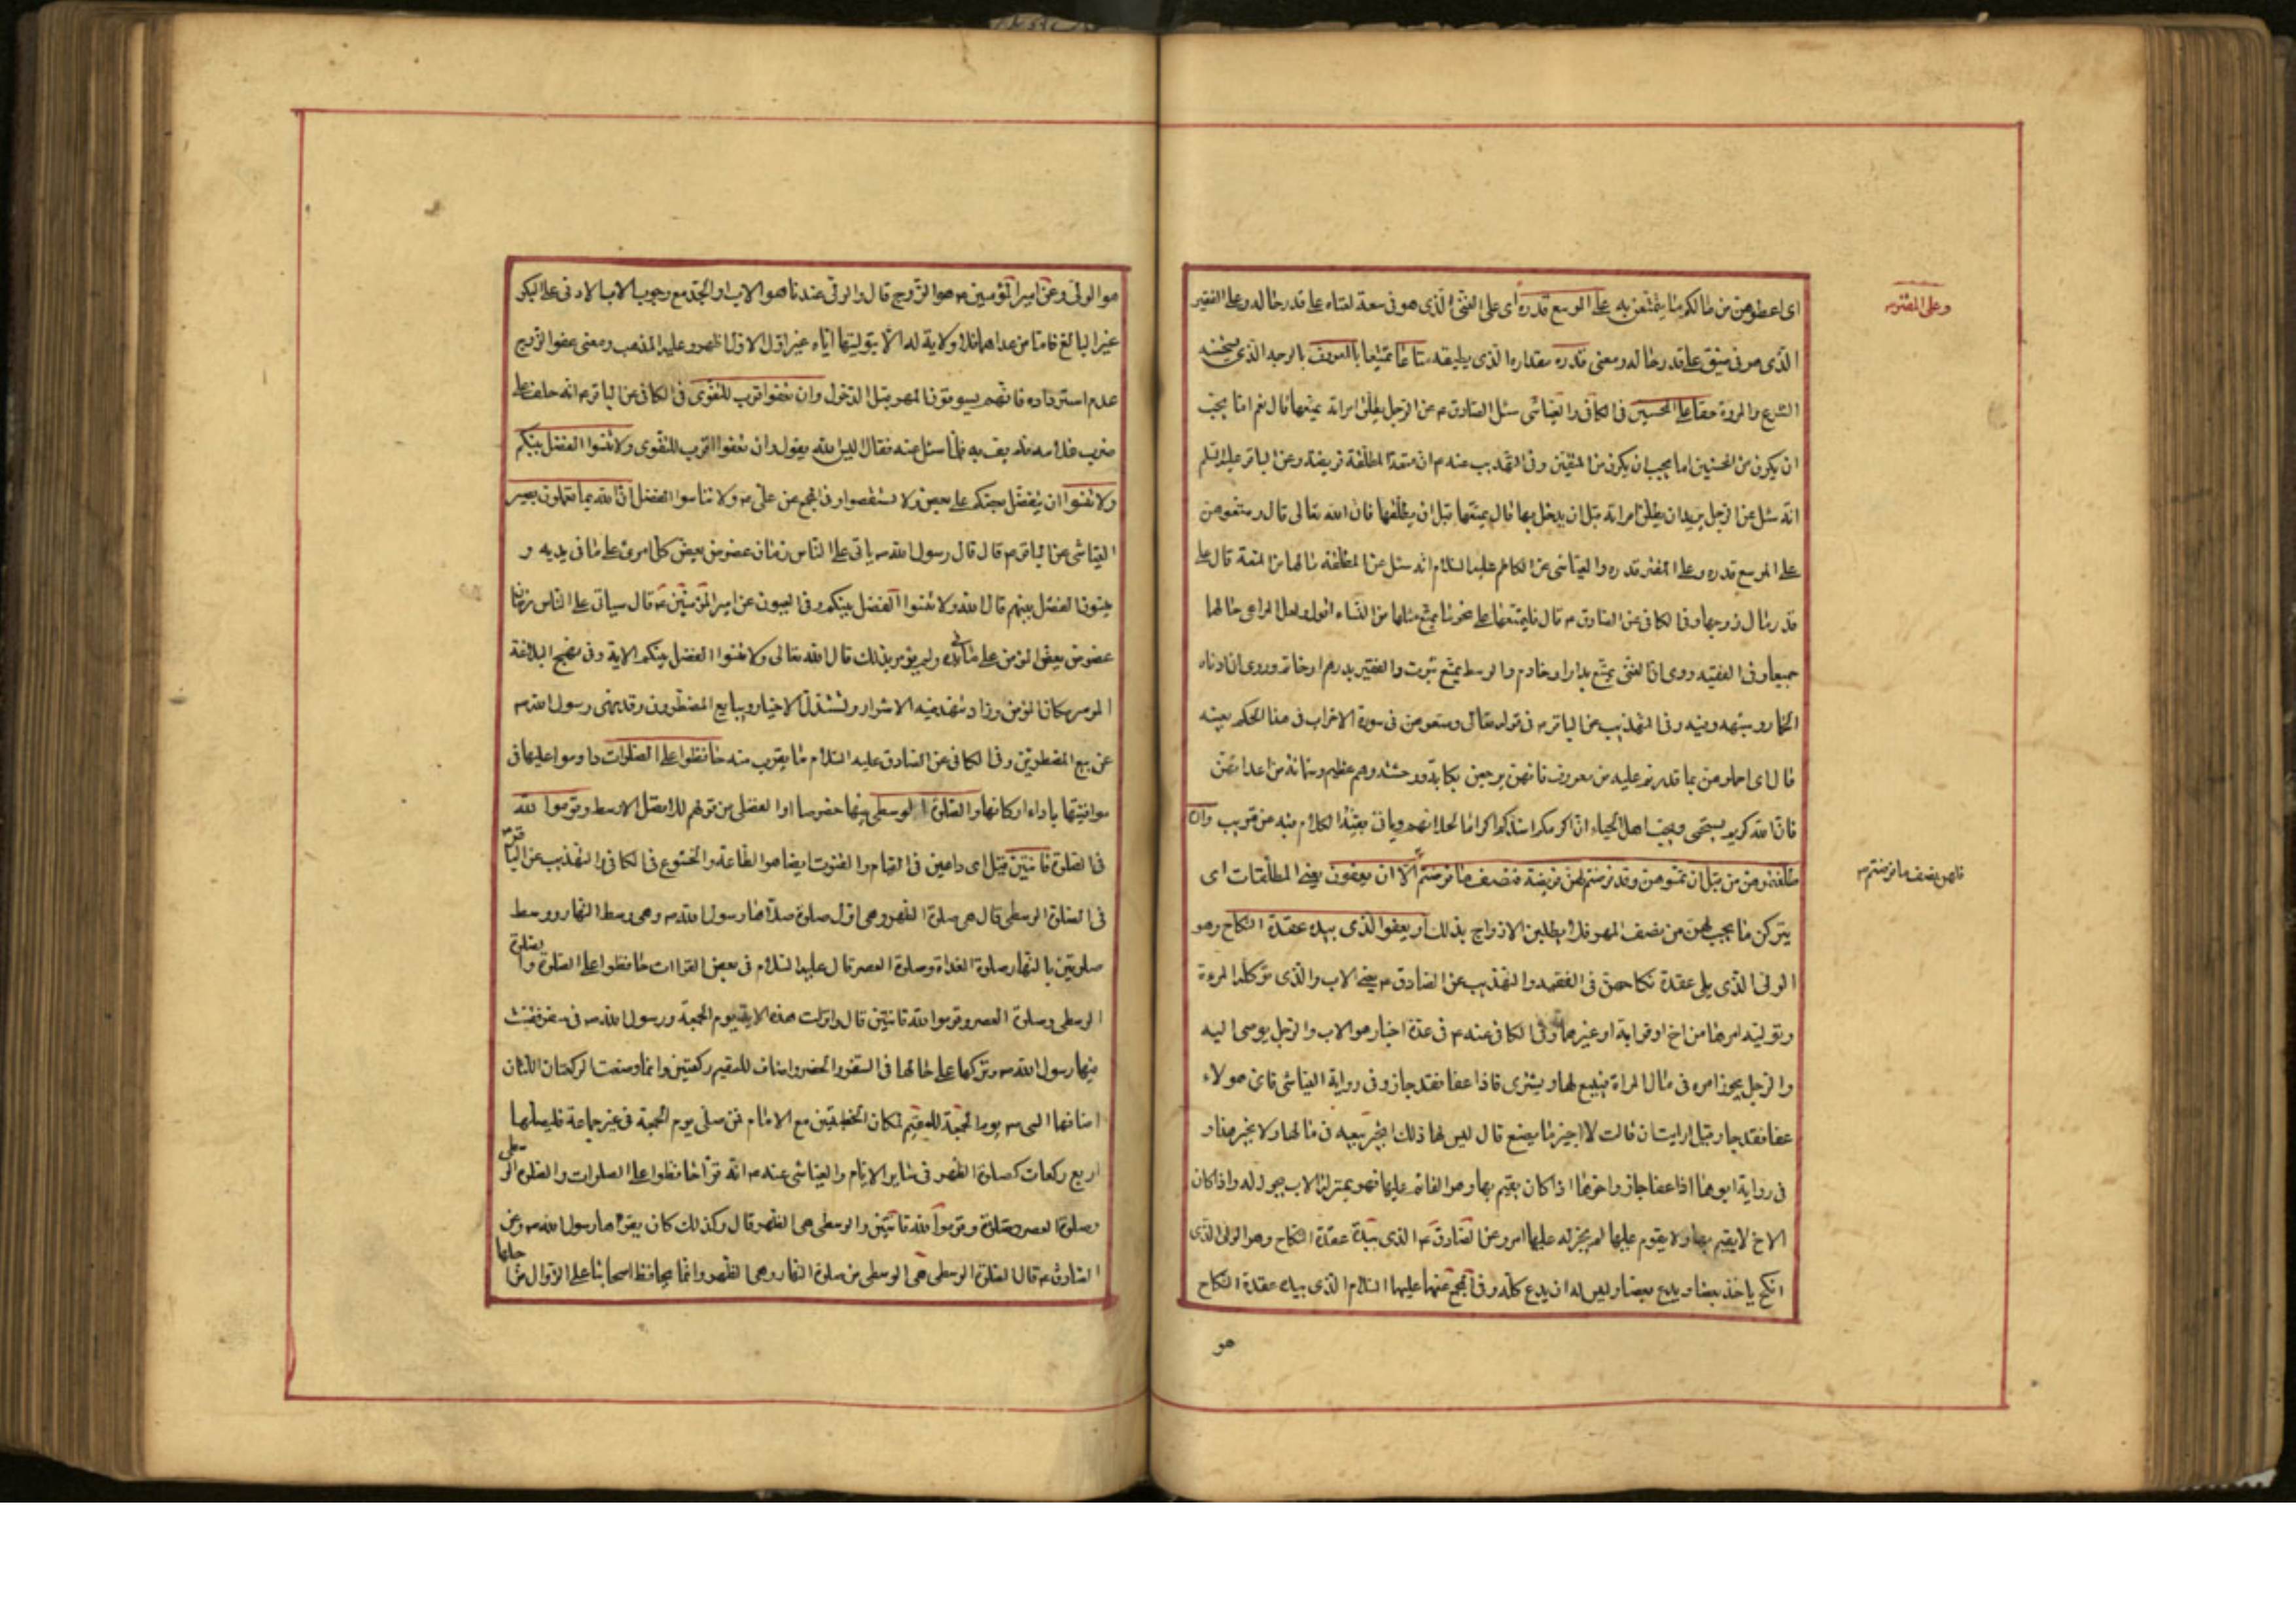 اى اعطوهن من مالكم ما يتمتعن به على الموسع قدره اى على الغنى الذى هو فى سعة لغناه على قدر حاله وعلى الفقير
وعلى المقتر
الذى هو فى ضيق على قدر حاله ومعنى قدره مقداره الذى يطيقه متاعا تمتيعا بالمعروف بالوجه الذى يستحسنه
الشرع والمروة حقا على المحسنين فى الكافى والعياشى سئل الصادق عن الرجل يطلق امراته يمتعها قال نعم اما يحب
ان يكون من المحسنين اما يحب ان يكون من المتقين وفى التهذيب عنه ان متعة المطلقة فريضة وعن الباقر عليه السلم
انه سئل عن الرجل يريدان يطلق امراته قبل ان يدخل بها قال يمتعها قبل ان يطلقها فان الله تعالى قال ومتعوهن
على الموسع قدره وعلى المقتر قدره والعياشى عن الكاظم عليه السلام انه سئل عن المطلقة مالها من المتعة قال على
قدر مال زوجها وفى الكافى عن الصادق قال فليمتعها على نحو ما يمتع مثلها من النساء اقول ولعل المراعى حالها
جميعا وفى الفقيه روى ان الغنى يمتع بدار او خادم والوسط يمتع بثوب والفقير بدرهم او خاتم وروى ان ادناه
الخمار وشبهه وفيه وفى التهذيب عن الباقر فى قوله تعالى ومتعوهن فى سورة الاحزاب فى هذا الحكم بعينه
قال اى احملوهن بما قدرتم عليه من معروف فانهن يرجعن بكابة ووحشة وهم عظيم وشماتة من اعدائهن
فان الله كريم يستحيى ويحب اهل الحياء ان اكرمكم اشدكم اكراما لحلائلهم وياتى بقية الكلام فيه عن قريب وان
طلقتموهن من قبل ان تمسوهن وقد فرضتم لهن فريضة فنصف ما فرضتم الا ان يعفون يعنى المطلقات اى
فلهن نصف ما فرضتم
يتركن ما يجب لهن من نصف المهر فلا يطلبن الازواج بذلك او يعفوا الذى بيده عقدة النكاح وهو
الولى الذى يلى عقدة نكاحهن فى الفقيه والتهذيب عن الصادق يعنى الاب والذى توكله المرءة
وتوليه امرها من اخ او قرابة او غيرهما وفى الكافى عنه فى عدة اخبار هو الاب والرجل يوصى اليه
والرجل يجوز امره فى مال المراة فيبيع لها ويشترى فاذا عفا فقد جاز وفى رواية العياشى فاى هولاء
عفا فقد جاز قيل ارايت ان قالت لا اجيز ما يصنع قال ليس لها ذلك اتجيز بيعه فى مالها ولا تجيز هذا و
فى رواية ابوها اذا عفا جاز واخوها اذا كان يقيم بها وهو القائم عليها فهو بمنزلة الاب يجوز له واذا كان
الاخ لا يقيم بها ولا يقوم عليها لم يجز له عليها امر وعن الصادق الذى بيده عقدة النكاح وهو الولى الذى
انكح ياخذ بعضا ويدع بعضا وليس له ان يدع كله وفى المجمع عنهما عليهما السلام الذى بيده عقدة النكاح
هو
هو الولى وعن امير المؤمنين هو الزوج قال والولى عندنا هو الاب او الجد مع وجود الاب الادنى على البكر
غير البالغ فاما من عداهما فلا ولاية له الا بتوليتها اياه غير اقول الاول اظهر وعليه المذهب ومعنى عفو الزوج
عدم استرداده فانهم يسوقون المهر قبل الدخول وان تعفوا اقرب للتقوى فى الكافى عن الباقر انه حلف على
ضرب غلامه فلم يف به فلما سئل عنه فقال اليس الله يقول وان تعفوا اقرب للتقوى ولا تنسوا الفضل بينكم
ولا تنسوا ان يتفضل بعضكم على بعض ولا تستقصوا وفى المجمع عن على ولا تناسوا الفضل ان الله بما تعملون بصير
العياشى عن الباقر قال قال رسول الله ياتى على الناس زمان عضوض يعض كل امرئ على ما فى يديه و
ينسون الفضل بينهم قال الله ولا تنسوا الفضل بينكم وفى العيون عن امير المؤمنين قال سياتى على الناس زمان
عضوض يعض المؤمن على ما فى يده ولم يؤمر بذلك قال الله تعالى ولا تنسوا الفضل بينكم الاية وفى نهج البلاغة
الموسر مكان المؤمن وزاد تنهد فيه الاشرار وتستذل الاخيار ويبايع المضطرون وقد نهى رسول الله
عن بيع المضطرين وفى الكافى عن الصادق عليه السلام ما يقرب منه حافظوا على الصلوات داوموا عليها فى
مواقيتها باداء اركانها والصلوة الوسطى بينها خصوصا او الفضلى من قولهم للافضل الاوسط وقوموا لله
فى الصلوة قانتين قيل اى داعين فى القيام والقنوت ايضا هو الطاعة والخشوع فى الكافى والتهذيب عن الباقر
فى الصلوة الوسطى قال هى صلوة الظهر وهى اول صلوة صلاها رسول الله وهى وسط النهار ووسط
صلوتين بالنهار صلوة الغداة وصلوة العصر قال عليه السلام فى بعض القراات حافظوا على الصلوة والصلوة
الوسطى وصلوة العصر وقوموا لله قانتين قال وانزلت هذه الاية يوم الجمعة ورسول الله فى سفر فقنت
فيها رسول الله وتركها على حالها فى السفر والحضر واضاف للمقيم ركعتين وانما وضعت الركعتان اللتان
اضافها النبى يوم الجمعة للمقيم لمكان الخطبتين مع الامام فمن صلى يوم الجمعة فى غير جماعة فليصلها
اربع ركعات كصلوة الظهر فى سائر الايام والعياشى عنه انه قرا حافظوا على الصلوات والصلوة الوسطى
وصلوة العصر وقوموا لله قانتين والوسطى هى الظهر قال وكذلك كان يقراها رسول الله وعن
الصادق قال الصلوة الوسطى هى الوسطى من صلوة النهار وهى الظهر وانما يحافظ اصحابنا على الزوال من اجلها